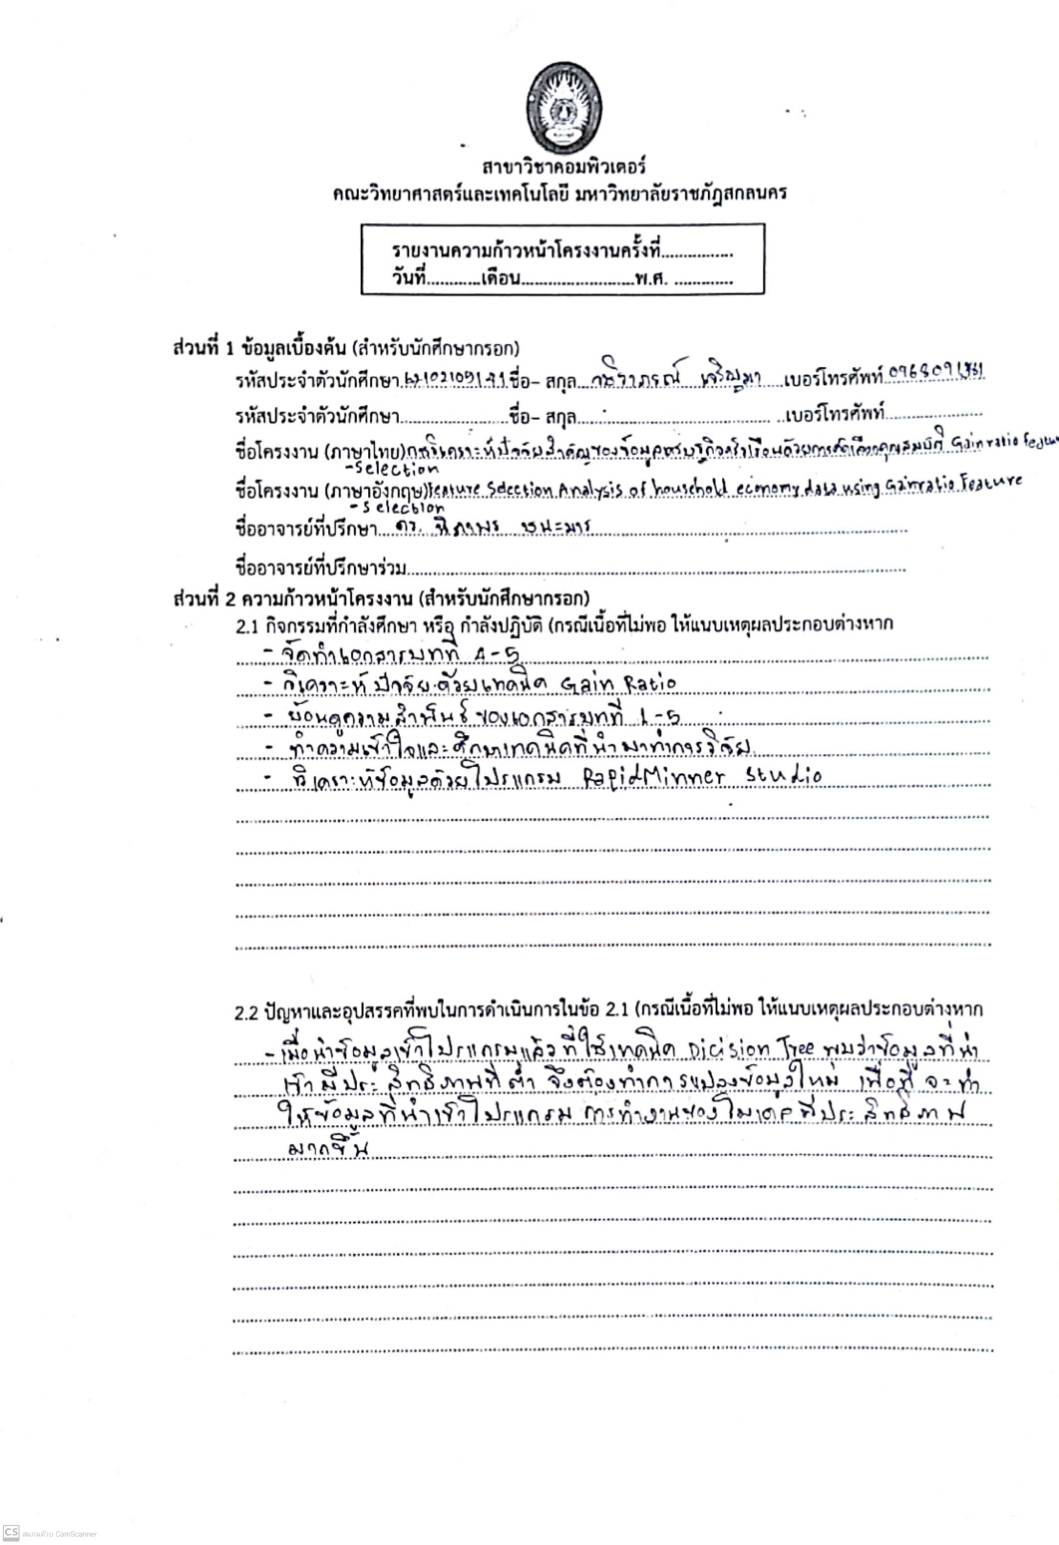 สาขาวิชาคอมพิวเตอร์
คณะวิทยาศาสตร์และเทคโนโลยี มหาวิทยาลัยราชภัฏสกลนคร
รายงานความก้าวหน้าโครงงานครั้งที่................
วันที่............เดือน.........................พ.ศ. .............
ส่วนที่ 1 ข้อมูลเบื้องต้น (สำหรับนักศึกษากรอก)
รหัสประจำตัวนักศึกษา ชื่อ- สกุล เบอร์โทรศัพท์
รหัสประจำตัวนักศึกษา........................ชื่อ- สกุล............................................เบอร์โทรศัพท์......................
ชื่อโครงงาน (ภาษาไทย)การวิเคราะห์ปัจจัยสำคัญของข้อมูลเศรษฐกิจครัวเรือนด้วยการคัดเลือกคุณสมบัติ Gainratio Feature
-Selection
ชื่อโครงงาน (ภาษาอังกฤษ)Feature Selection Analysis of household economy data using Gainratio Feature
-Selection
ชื่ออาจารย์ที่ปรึกษา ดร.
ชื่ออาจารย์ที่ปรึกษาร่วม
ส่วนที่ 2 ความก้าวหน้าโครงงาน (สำหรับนักศึกษากรอก)
2.1 กิจกรรมที่กำลังศึกษา หรือ กำลังปฏิบัติ (กรณีเนื้อที่ไม่พอ ให้แนบเหตุผลประกอบต่างหาก
- จัดทำเอกสารบทที่ 4-5
- วิเคราะห์ปัจจัยด้วยเทคนิค Gain Ratio
- ย้อนดูความสำพันธ์ของเอกสารบทที่ 1-5
- ทำความเข้าใจและศึกษาเทคนิคที่นำมาทำการวิจัย
- วิเคราะห์ข้อมูลด้วยโปรแกรม RapidMinner Studio
2.2 ปัญหาและอุปสรรคที่พบในการดำเนินการในข้อ 2.1 (กรณีเนื้อที่ไม่พอ ให้แนบเหตุผลประกอบต่างหาก
- เมื่อนำข้อมูลเข้าโปรแกรมแล้วที่ใช้เทคนิค Dicision Tree พบว่าข้อมูลที่นำ
เข้ามีประสิทธิภาพที่ต่ำ จึงต้องทำการแปลงข้อมูลใหม่ เพื่อที่จะทำ
ให้ข้อมูลที่นำเข้าโปรแกรม การทำงานของโมเดลมีประสิทธิภาพ
มากขึ้น
CS สแกนด้วย CamScanner